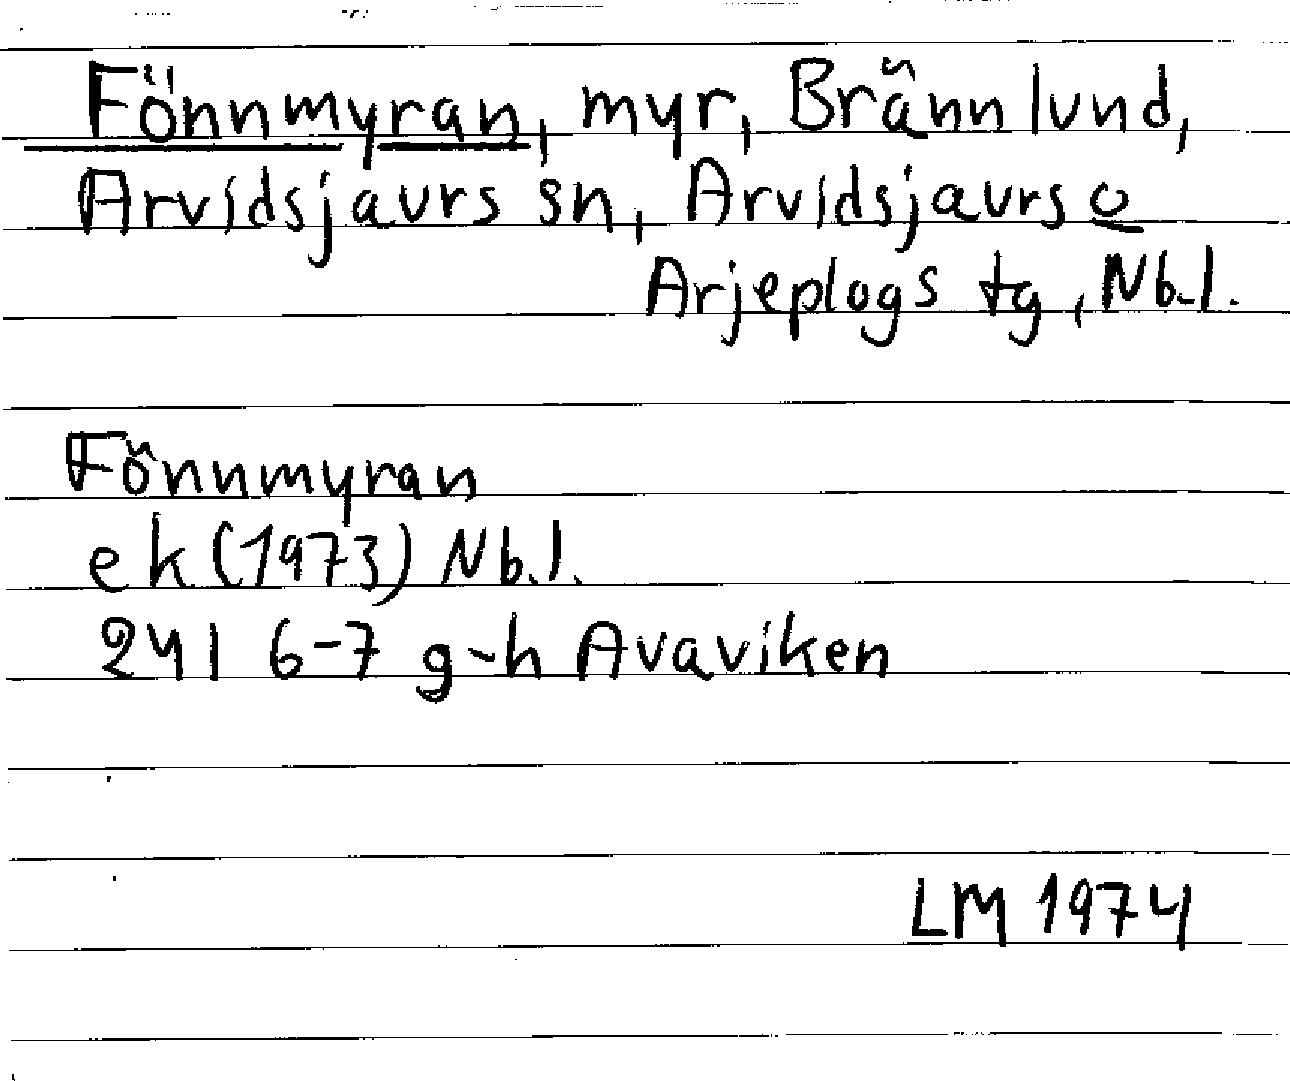 Fönnmyran, myr, Brännlund,
Arvidsjaurs sn, Arvidsjaurs o
Arjeplogs tg, Nb.l.
Fönnmyran
ek (1973) Nb.l.
24I 6-7 g-h Avaviken
LM 1974